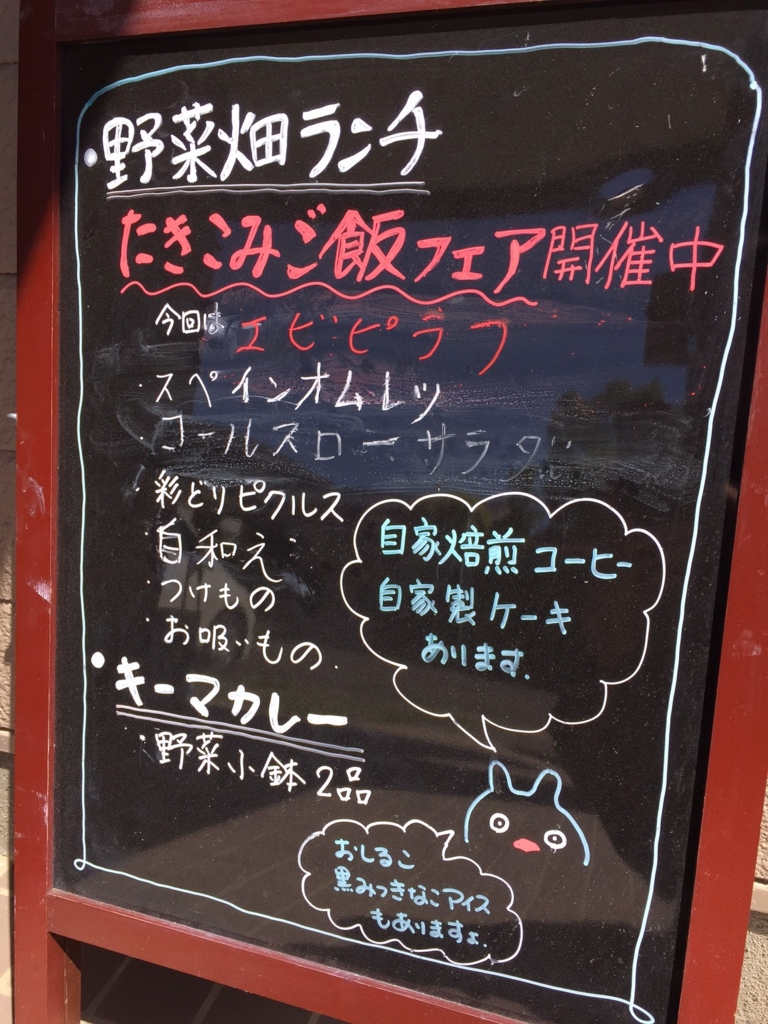 ・野菜畑ランチ
たきこみご飯フェア開催中
今回は エビピラフ
・スペインオムレツ
・コールスローサラダ
・彩どりピクルス
・白和え
・つけもの
・お吸いもの.
・キーマカレー
・野菜小鉢2品
自家焙煎コーヒー
自家製ケーキ
あります.
おしるこ
黒みつきなこアイス
もありますょ.